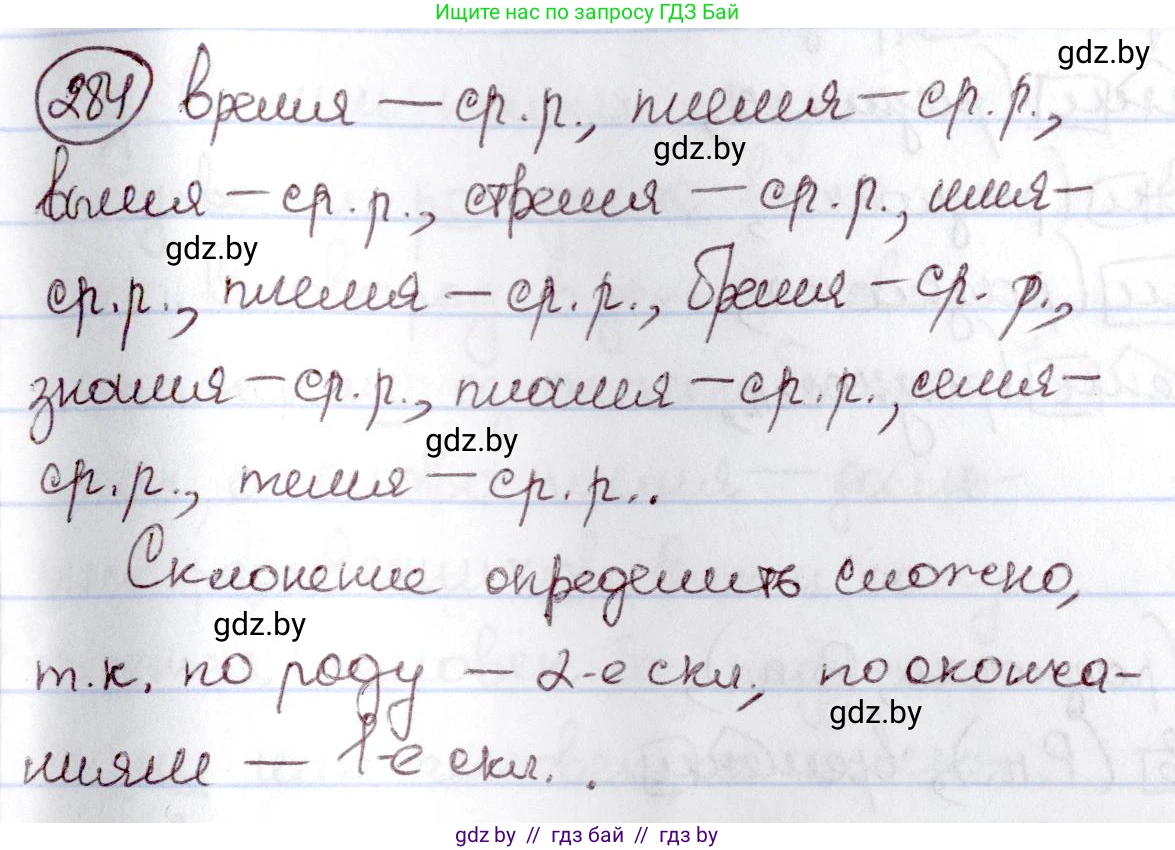 Ищите нас по запросу ГДЗ Бай
gdz.by
284 время — ср.р., племя — ср.р.,
gdz.by
вымя — ср.р., стремя — ср.р., имя —
gdz.by
ср.р., племя — ср.р., бремя — ср.р.,
знамя — ср.р., пламя — ср.р., семя —
gdz.by
ср.р., темя — ср.р..
Склонение определить сложно,
gdz.by
т.к. по роду — 2-е скл., по оконча-
gdz.by
ниям — 1-е скл. .
gdz.by // гдз бай // gdz by